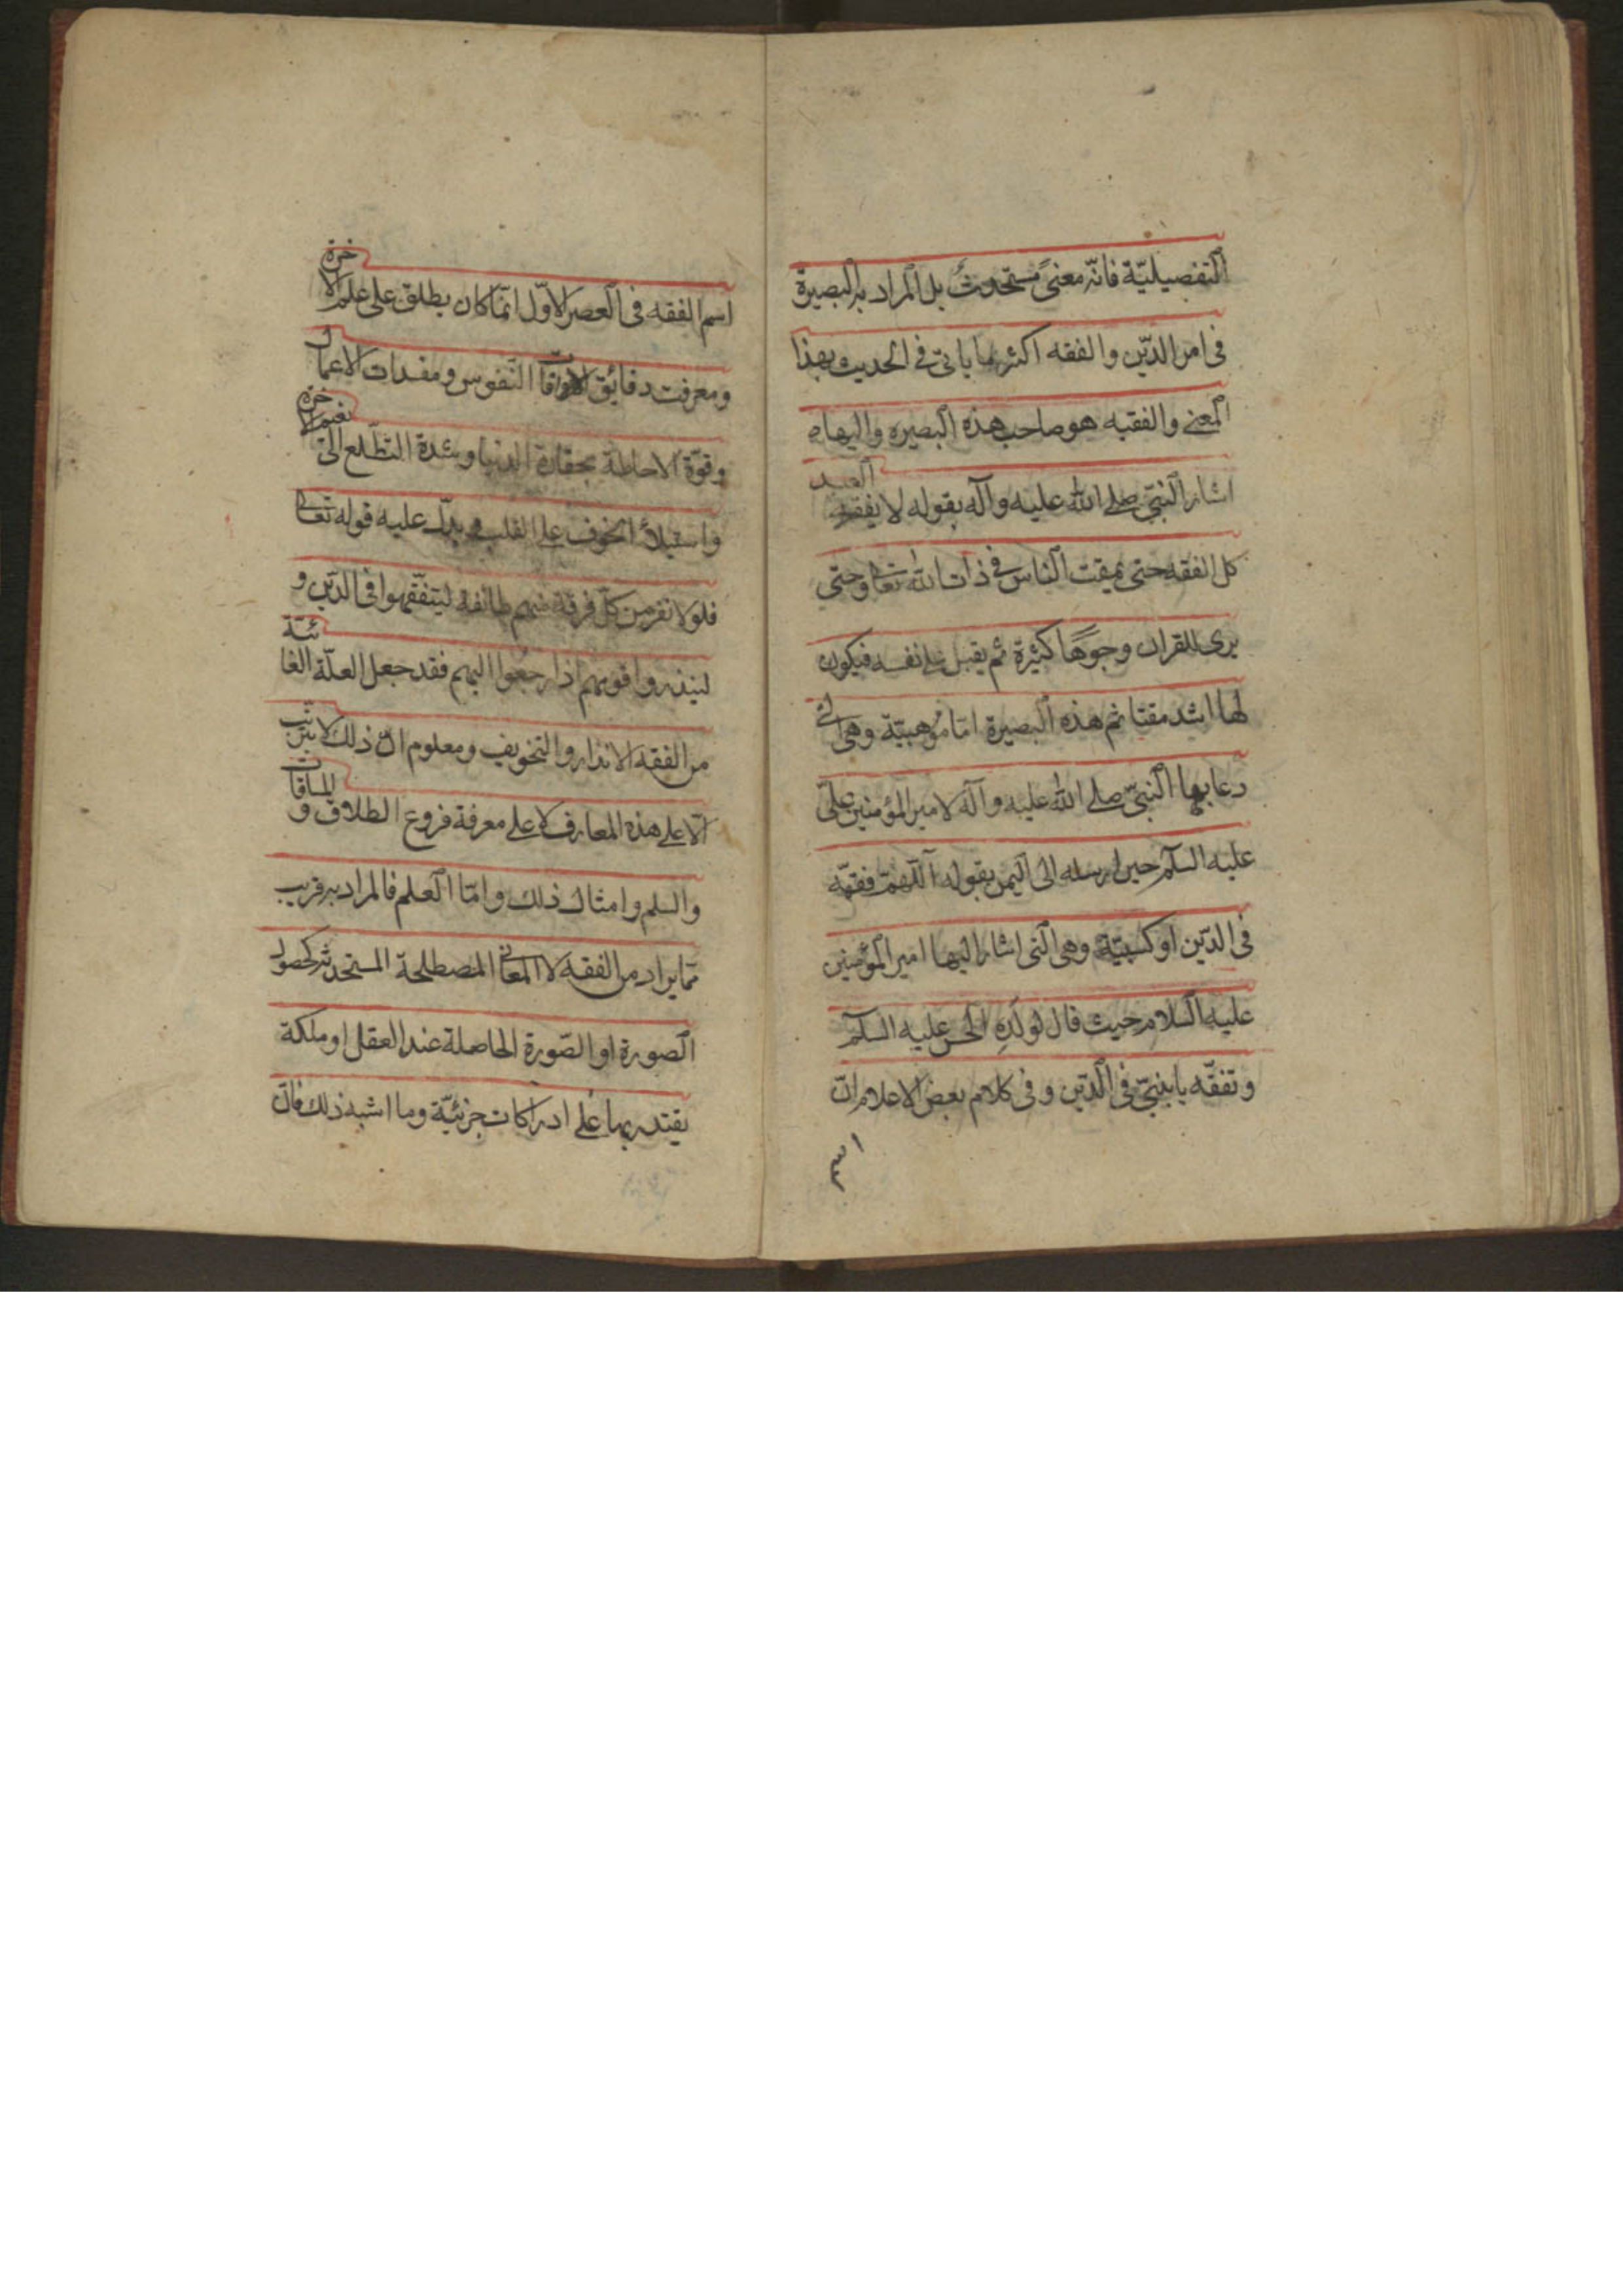 التفصيليّة فانّه معنىً مستحدثٌ بل المراد به البصيرة
فى امر الدّين والفقه اكثر ما ياتى فى الحديث بهذا
المعنى والفقيه هو صاحب هذه البصيره واليها
اشار النبىّ صلى الله عليه وآله بقوله لا يفقه العبد
كل الفقه حتى يمقت الناس فى ذات الله تعالى وحتى
يرى للقران وجوهًا كثيرة ثم يقبل على نفسه فيكون
لها اشد مقتا ثم هذه البصيرة امّا موهبيّة وهى التى
دعا بها النبىّ صلى الله عليه وآله لامير المؤمنين علىّ
عليه السلم حين ارسله الى اليمن بقوله اللّهمّ فقّهه
فى الدّين او كسبيّة وهى التى اشار اليها امير المؤمنين
عليه السلام حيث قال لولَدِهِ الحسن عليه السلم
وتفقّه يا بنىّ فى الدّين وفى كلام بعض الاعلام انّ
اسم
اسم الفقه فى العصر الاوّل انّما كان يطلق على علم الاخرة
ومعرفت دقائق افات النّفوس ومفسدات الاعمال
وقوّة الاحاطة بحقارة الدنيا وشدة التطّلع الى نعيم الاخرة
واستيلاء الخوف على القلب ويدلّ عليه قوله تعالى
فلولا نفر من كلّ فرقة منهم طائفة ليتفقّهوا فى الدّين و
لينذروا قومهم اذا رجعوا اليهم فقد جعل العلّة الغائيّة
من الفقه الانذار والتخويف ومعلوم انّ ذلك لا يترتّب
الّا على هذه المعارف لا على معرفة فروع الطلاق والمساقات
والسلم وامثال ذلك وامّا العلم فالمراد به قريب
ممّا يراد من الفقه لا المعانى المصطلحة المستحدثه كحصول
الصورة او الصّورة الحاصلة عند العقل او ملكة
يقتدر بها على ادراكات جزئيّة وما اشبه ذلك فانّ